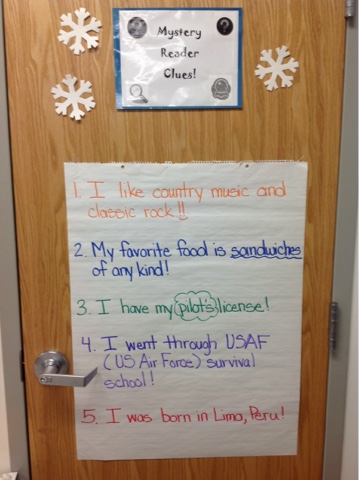 Mystery
Reader
Clues!
1. I like country music and
classic rock!!
2. My favorite food is sandwiches
of any kind!
3. I have my pilot's license!
4. I went through USAF
(US Air Force) survival
school!
5. I was born in Lima, Peru!